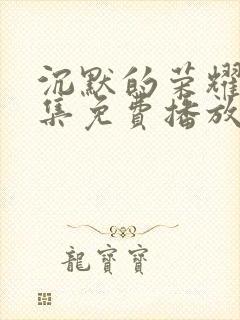 沉默的荣耀
集免费播放
龍寶寶